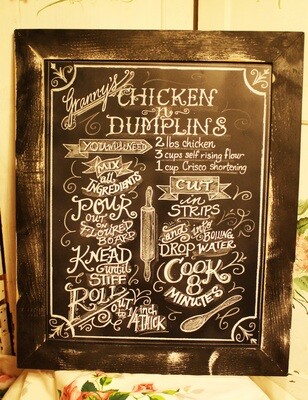 Granny's
CHICKEN
-n-
DUMPLINS
YOU WILL NEED
2 lbs chicken
3 cups self rising flour
1 cup Crisco shortening
MIX
all
INGREDIENTS
POUR
OUT
ON
FLOURED
BOARD
KNEAD
until
STIFF
ROLL
OUT
to 1/4 inch
THICK
CUT
in
STRIPS
and
DROP
into
BOILING
WATER
COOK
8
MINUTES